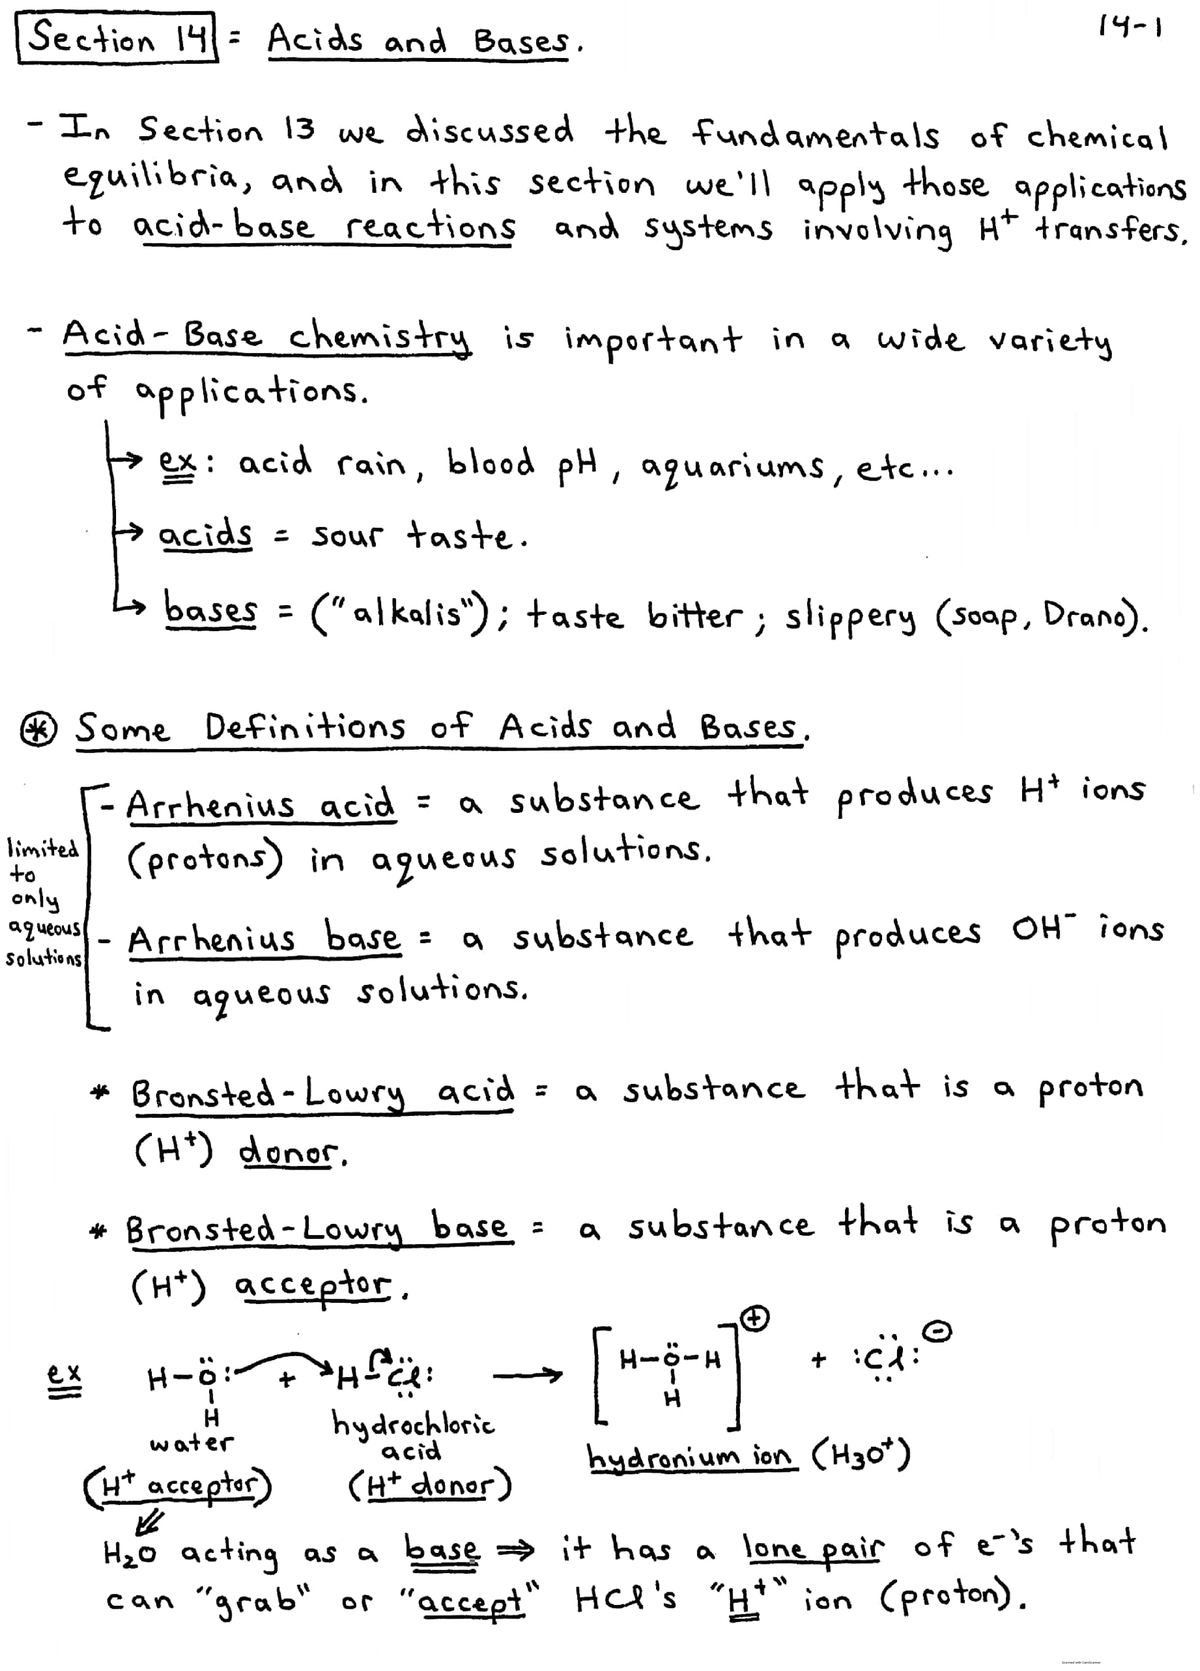 Section 14 = Acids and Bases. 14-1
- In Section 13 we discussed the fundamentals of chemical
equilibria, and in this section we'll apply those applications
to acid-base reactions and systems involving H⁺ transfers.
- Acid-Base chemistry is important in a wide variety
of applications.
→ ex: acid rain, blood pH, aquariums, etc...
→ acids = sour taste.
→ bases = ("alkalis"); taste bitter; slippery (soap, Drano).
⊛ Some Definitions of Acids and Bases.
- Arrhenius acid = a substance that produces H⁺ ions
(protons) in aqueous solutions.
limited
to
only
aqueous
solutions
- Arrhenius base = a substance that produces OH⁻ ions
in aqueous solutions.
* Bronsted-Lowry acid = a substance that is a proton
(H⁺) donor.
* Bronsted-Lowry base = a substance that is a proton
(H⁺) acceptor.
ex H-Ö: + H-Cl: → [H-Ö-H]⊕ + :Cl:⊖
H H
water hydrochloric
acid
hydronium ion (H₃O⁺)
(H⁺ acceptor) (H⁺ donor)
H₂O acting as a base ⇒ it has a lone pair of e⁻'s that
can "grab" or "accept" HCl's "H⁺" ion (proton).
Scanned with CamScanner